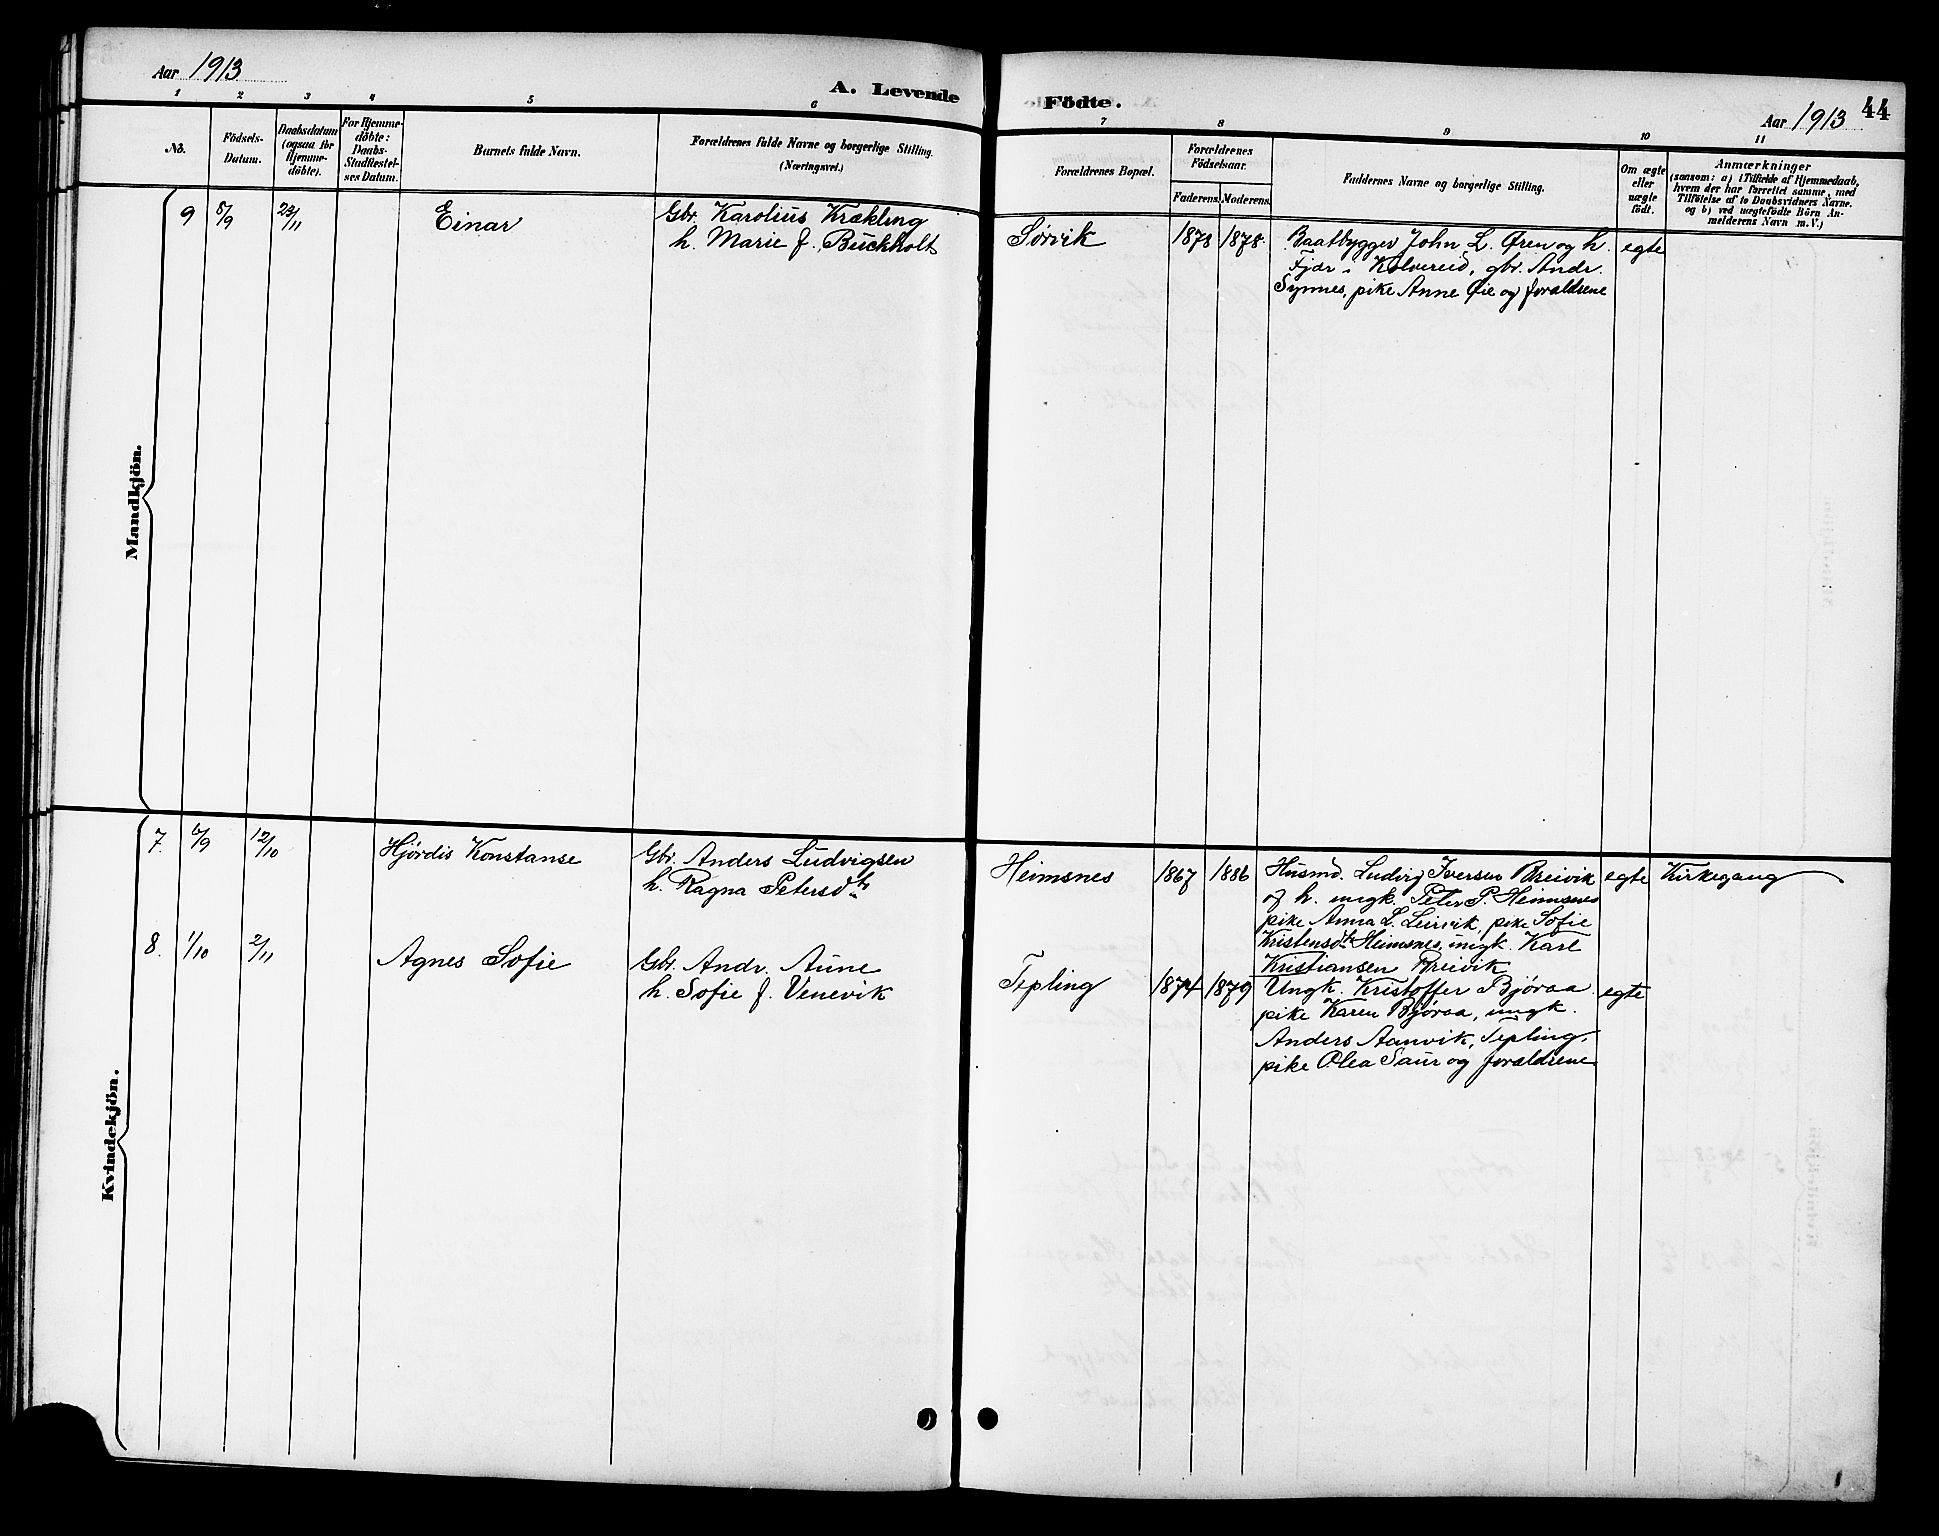 Aar 1913
A. Levende
1 2 3 4 5 6
No.
Födsels-
Datum.
Daabsdatum
(ogsaa for
Hjemme-
döbte).
For Hjemme-
döbte:
Daabs-
Stadfæstel-
ses Datum.
Barnets fulde Navn.
Forældrenes fulde Navne og borgerlige Stilling.
(Næringsvei.)
Mandkjön.
9 8/9 23/11 Einar
Gbr. Karolius Krækling
h. Marie f. Buckholt
Kvindekjön.
7. 6/9 12/10 Hjørdis Konstanse
Gbr. Anders Ludvigsen
h. Ragna Petersdtr
8. 1/10 2/11 Agnes Sofie
Gbr. Andr. Aune
h. Sofie f. Venevik
Födte.
Aar 1913 44
7 8 9 10 11
Forældrenes Bopæl.
Forældrenes
Födselsaar.
Faderens. Moderens.
Faddernes Navne og borgerlige Stilling.
Om ægte
eller
uægte
födt.
Anmærkninger
(saasom: a) i Tilfælde af Hjemmedaab,
hvem der har forrettet samme, med
Tilföielse af to Daabsvidners Navne.
og b) ved uægtefödte Börn An-
melderens Navn m.V.)
Sørvik 1878 1878.
Baatbygger John L. Øren og h. egte
Fjær i Kolvereid, gbr. Andr.
Synnes, pike Anne Øie og forældrene
Heimsnes 1867 1886
Husmd. Ludvig Iversen Breivik egte Kirkegang
og h. ungk. Peter P. Heimsnes
pike Anna L. Leirvik, pike Sofie
Kristensdtr Heimsnes, ungk. Karl
Kristiansen Breivik
Tepling 1874 1879
Ungk. Kristoffer Bjøraa egte
pike Karen Bjøraa, ungk.
Anders Aanvik, Tepling,
pike Olea Saur og forældrene